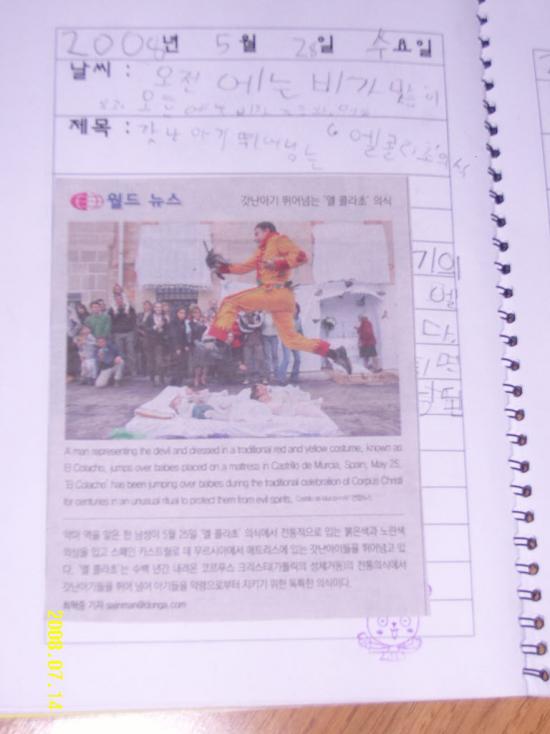 2008년 5월 28일 수요일
날씨 : 오전에는 비가 많이
오후
제목 : 갓난아기 뛰어넘는 엘 콜라초 의식
월드 뉴스
갓난아기 뛰어넘는 '엘 콜라초' 의식
기의
엘
다.
A man representing the devil and dressed in a traditional red and yellow costume, known as
El Colacho, jumps over babies placed on a mattress in Castrillo de Murcia, Spain, May 25.
'El Colacho' has been jumping over babies during the traditional celebration of Corpus Christi
for centuries in an unusual ritual to protect them from evil spirits.
악마 역을 맡은 한 남성이 5월 25일 '엘 콜라초' 의식에서 전통적으로 입는 붉은색과 노란색
의상을 입고 스페인 카스트릴로 데 무르시아에서 매트리스에 있는 갓난아이들을 뛰어넘고 있
다. '엘 콜라초'는 수백 년간 내려온 코르푸스 크리스티(가톨릭의 성체거동)의 전통의식에서
갓난아기들을 뛰어 넘어 아기들을 악령으로부터 지키기 위한 독특한 의식이다.
기자 sainman@donga.com
2008.07.14